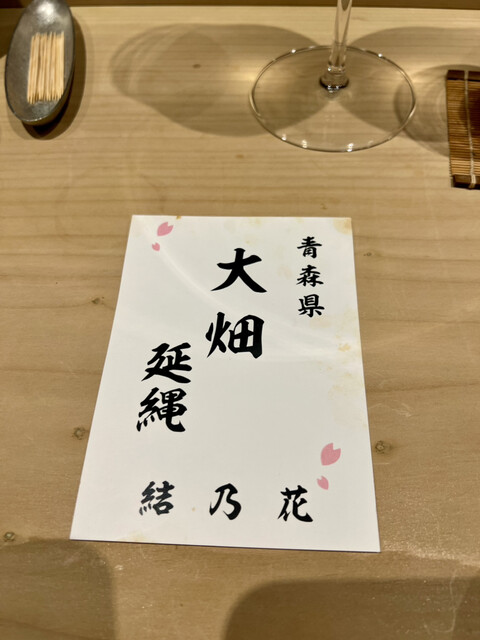 青森県
大畑
延縄
結乃花